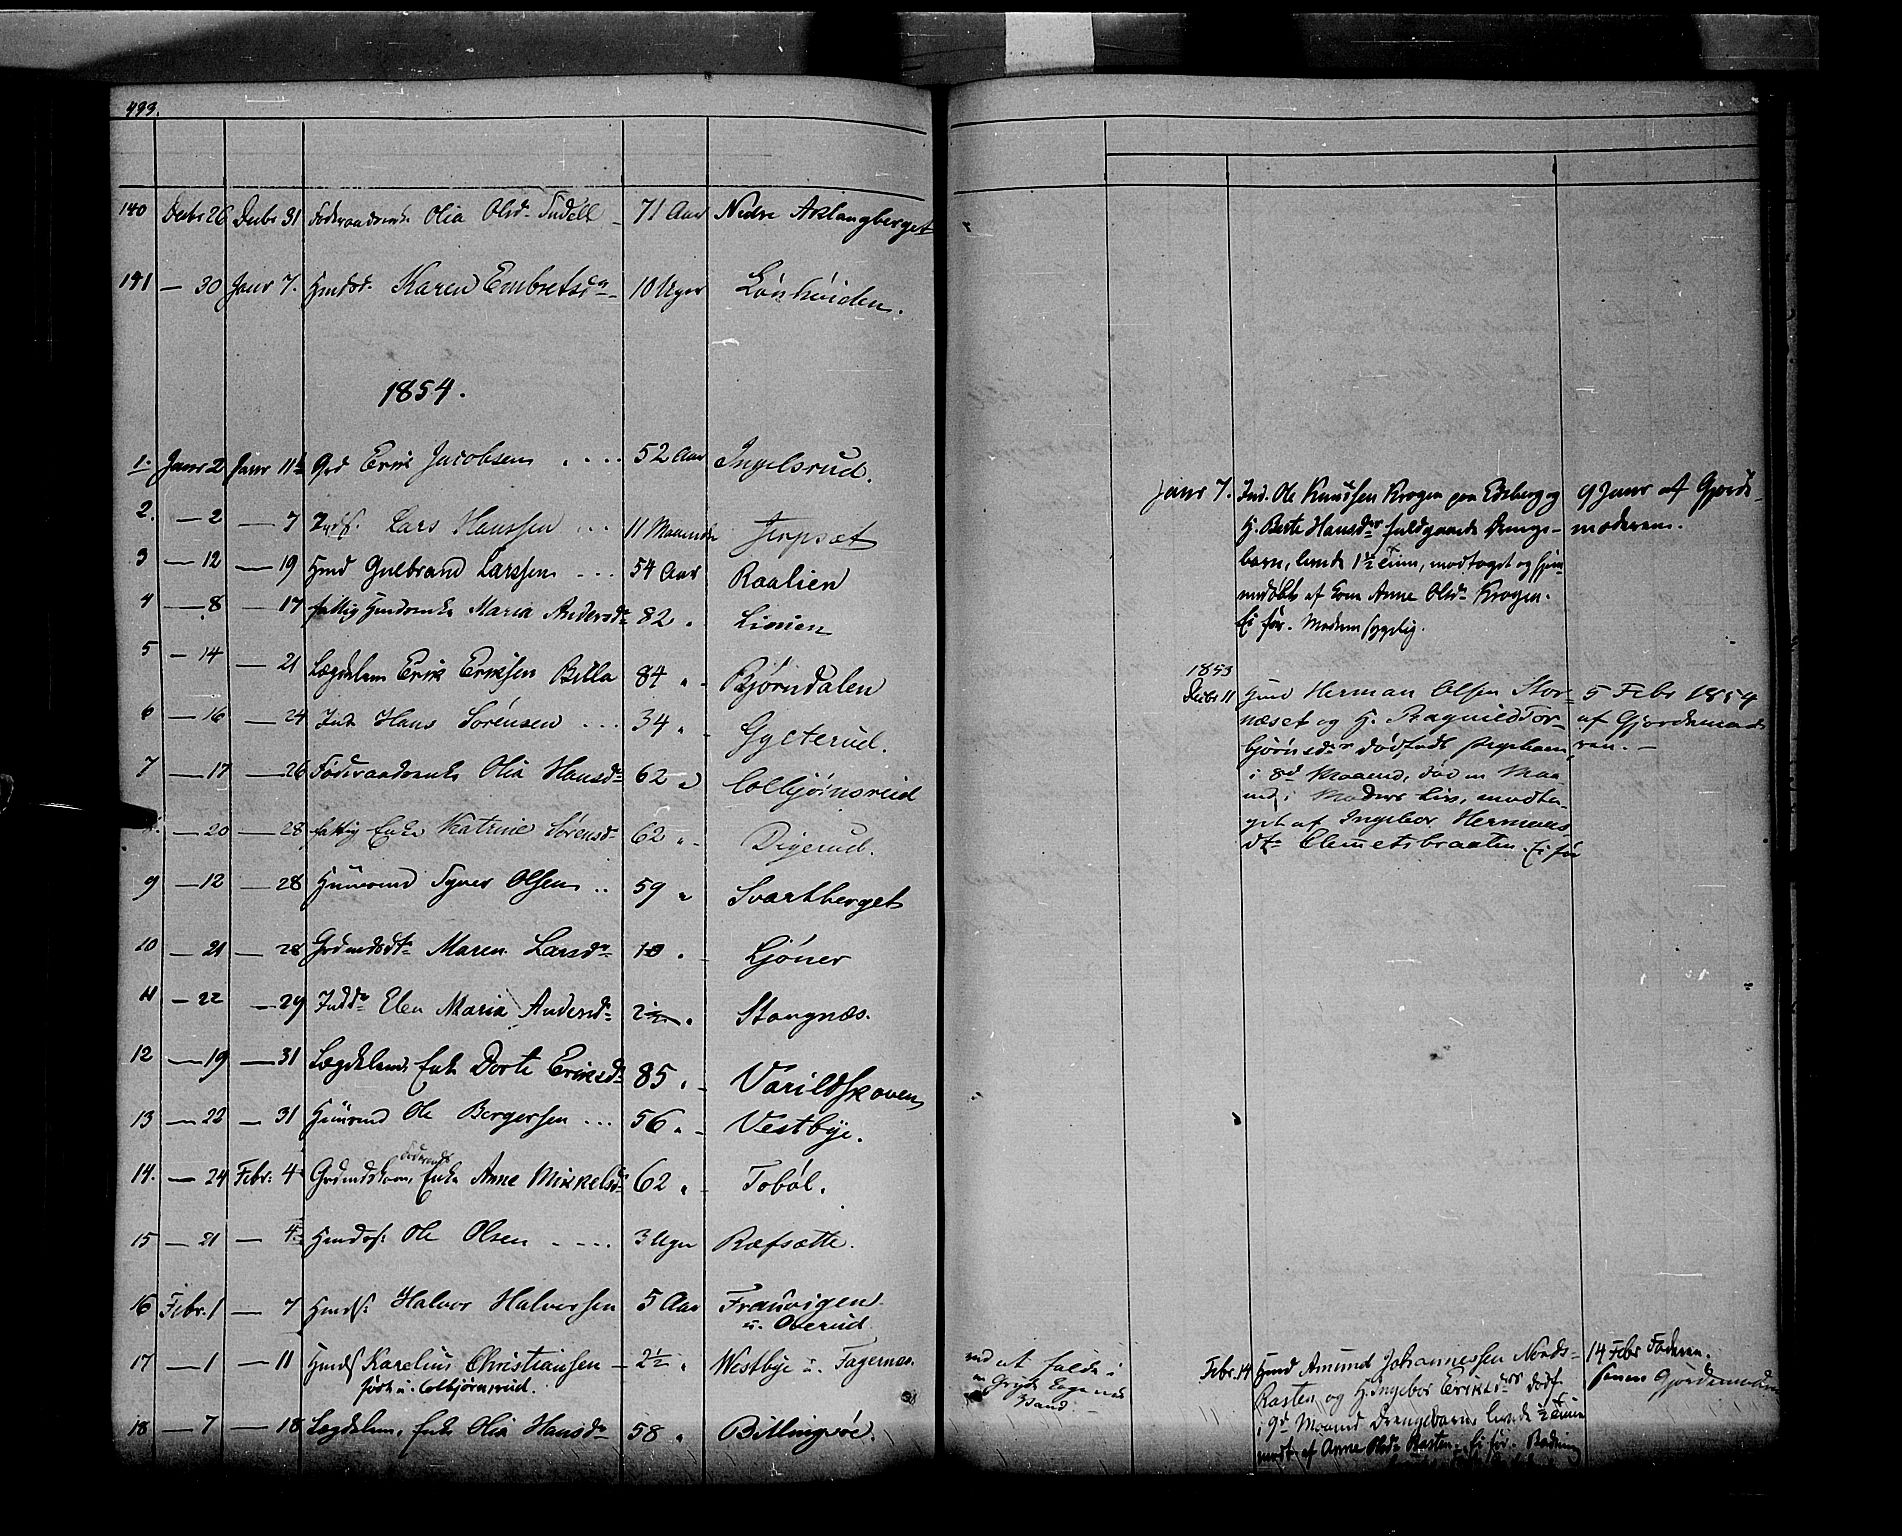 499.
140 Decbr 26 Decbr 31 Føderaadsenke Olia Olsdr Tudell 71 Aar Nedre Aslangberget
141 — 30 Janr 7. Hmdsd. Karen Embretsdr 10 Uger Lønhøiden.
1854.
1. Janr 2 Janr 11 Grd Erik Jacobsen .... 52 Aar Ingelsrud.
2. — 2 — 7 Inds. Lars Hanssen ... 11 Maaneder Jerpset
3 — 12 — 19 Hmd Gulbrand Larssen ... 54 Aar Raalien
4 — 8 — 17 fattig Hmdsenke Maria Andersdr 82 " Lismen
5 — 14 — 21 Lægdslem Erik Eriksen Billa 84 " Bjørndalen
6 — 16 — 24 Ind. Hans Sørensen ... 34 " Gycterud.
7 — 17 — 26 Føderaadsenke Olia Hansdr 62 " Colbjørnsrud
— 20 — 28 fattig Enke Katrine Sørensdr 62 " Digerud.
9 — 12 — 28 Huusmd Syver Olsen .. 59 " Svartberget
10 — 21 — 28 Grdmdsdtr Maren Larsdr 10 " Ljøner
11 — 22 — 29 Indsdr Elen Maria Andersdr 2½ " Stangnæs.
12 — 19 — 31 Lægdslem Enke Dorte Eriksdr 85 " Varildskoven
13 — 22 — 31 Huusmd Ole Bergersen ... 56 " Vestbye.
14. — 24 Febr. 4 Enke Anne Mikkelsdr 62 " Tobøl.
15 — 21 — 4 Hmdss. Ole Olsen .... 3 Uger Ræfsætte.
16 Febr. 1 — 7 Hmds. Halvor Halvorsen 5 Aar Frausvigen
u. Overud
17 — 1 — 11 Hmds Karelius Christiansen 2½ " Westbye u. Fagernes.
født u. Colbjørnsrud.
18 — 7 — 18 Lægdslem, Enke Olia Hansdr 58 " Billingsøe.
ved at falde i
en Gryde
Janr 7. Ind. Ole Knudsen Krogen paa Edsberg og
H. Berte Hansdr fuldgaaede Drenge-
barn, levede 1½ Time, modtaget og hjem-
medøbt af Kone Anne Olsdr Krogen.
Ei før. Moderen sygelig.
9 Janr af Gjorde-
moderen.
1853
Decbr 11 Hmd Herman Olsen Stor-
næset og H. Ragnild Tor-
bjørnsdr dødfødt Pigebarn
i 8d Maaned, død en Maa-
ned i Moders Liv, modta-
get af Ingebor Hermans-
dtr Clemetsbraaten. Ei før
5 Febr 1854
af Gjordemode-
ren. —
Febr. 14 Hmd Amund Johannessen Nords-
Rasten og H. Ingebor Eriksdr dødf.
i 9d Maaned Drengebarn, levede ½ Time
modt. af Anne Olsdr Rasten. Ei før.
14 Febr Faderen.
senere Gjordemoderen